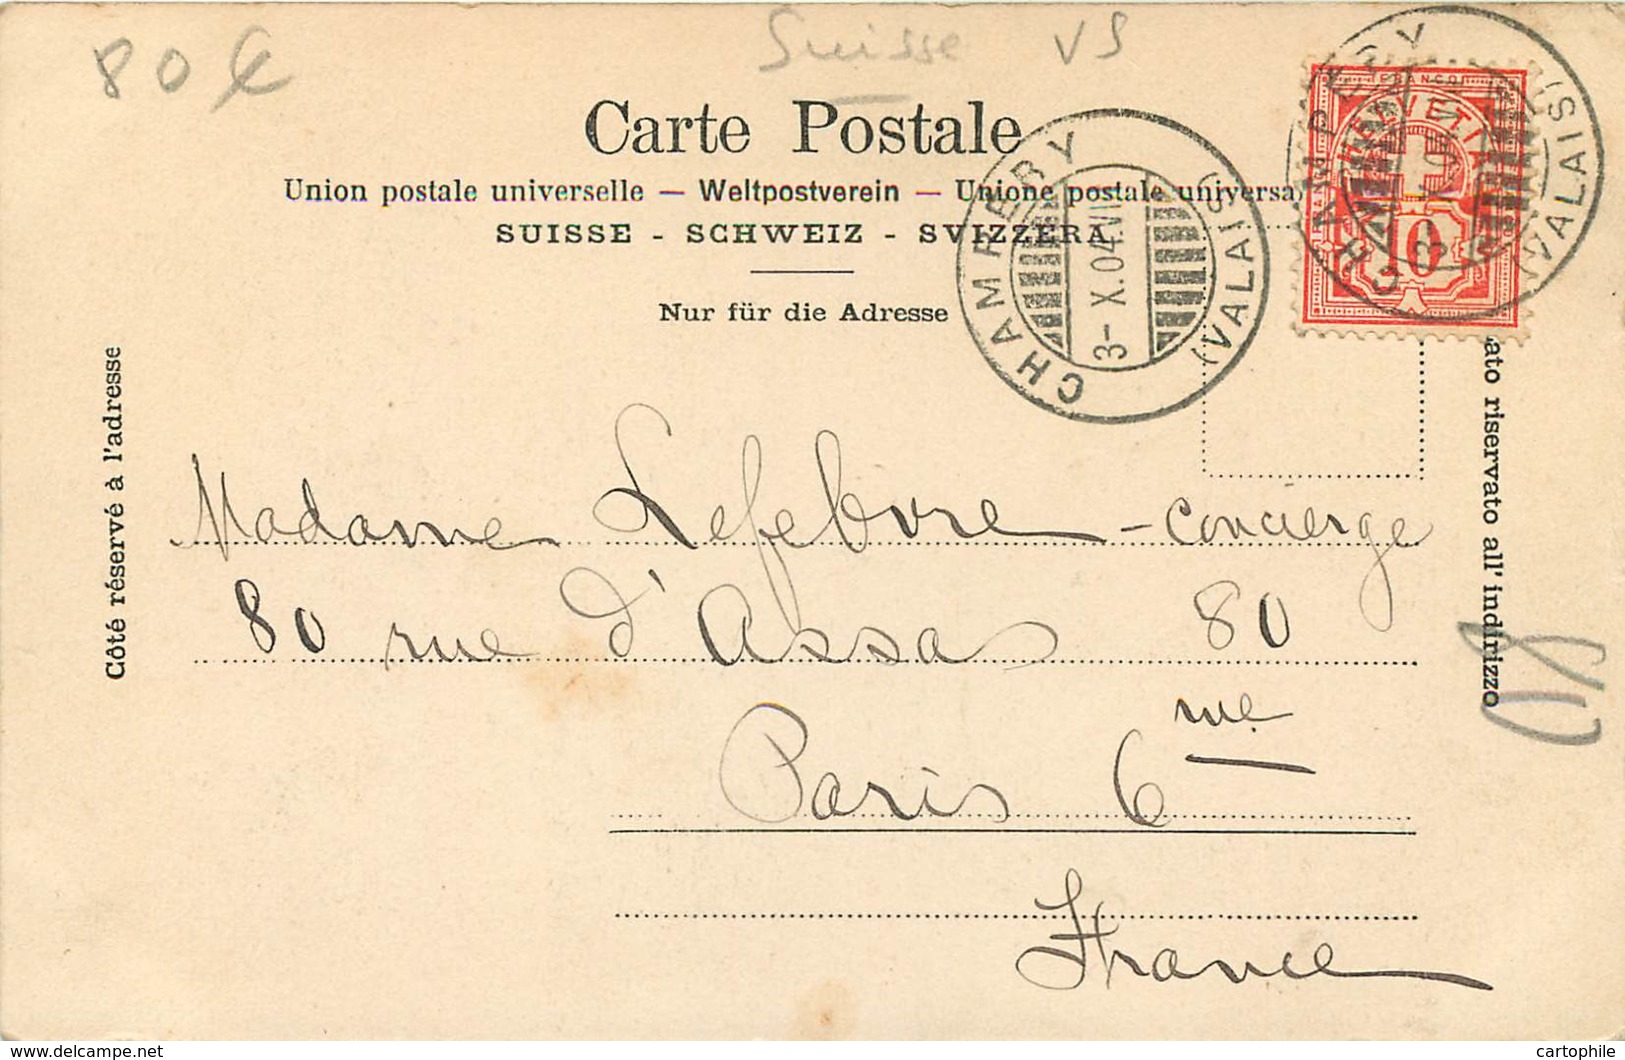 80 €
Suisse VS
Carte Postale
Union postale universelle — Weltpostverein — Unione postale universa
SUISSE - SCHWEIZ - SVIZZERA
Nur für die Adresse
CHAMPERY
3-X.04.VII
(VALAIS)
FRANCO
HELVETIA
10
CHAMPERY
(VALAIS)
Côté réservé à l'adresse
ato riservato all' indirizzo
Madame Lefebvre - concierge
80 rue d'Assas 80
Paris 6me
France
80
delcampe.net
cartophile